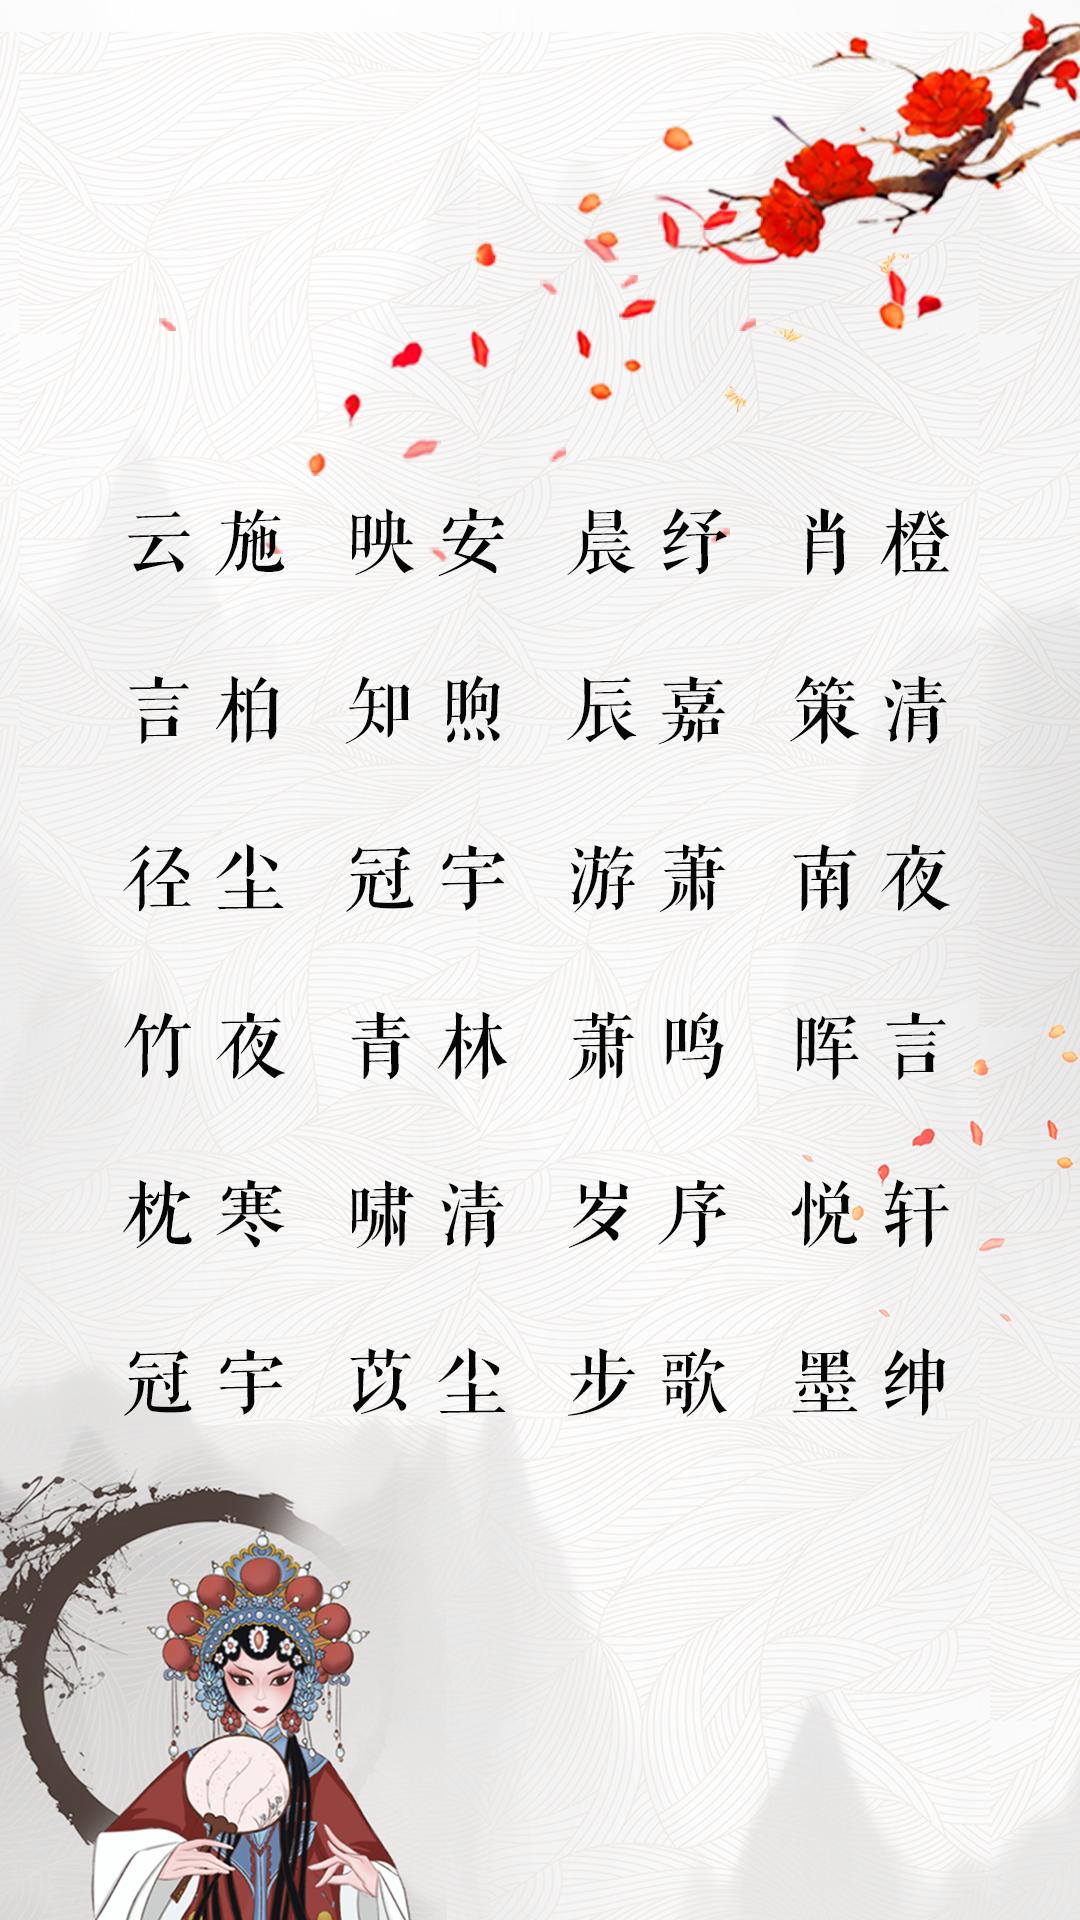 云施 映安 晨纾 肖橙
言柏 知煦 辰嘉 策清
径尘 冠宇 游萧 南夜
竹夜 青林 萧鸣 晖言
枕寒 啸清 岁序 悦轩
冠宇 苡尘 步歌 墨绅